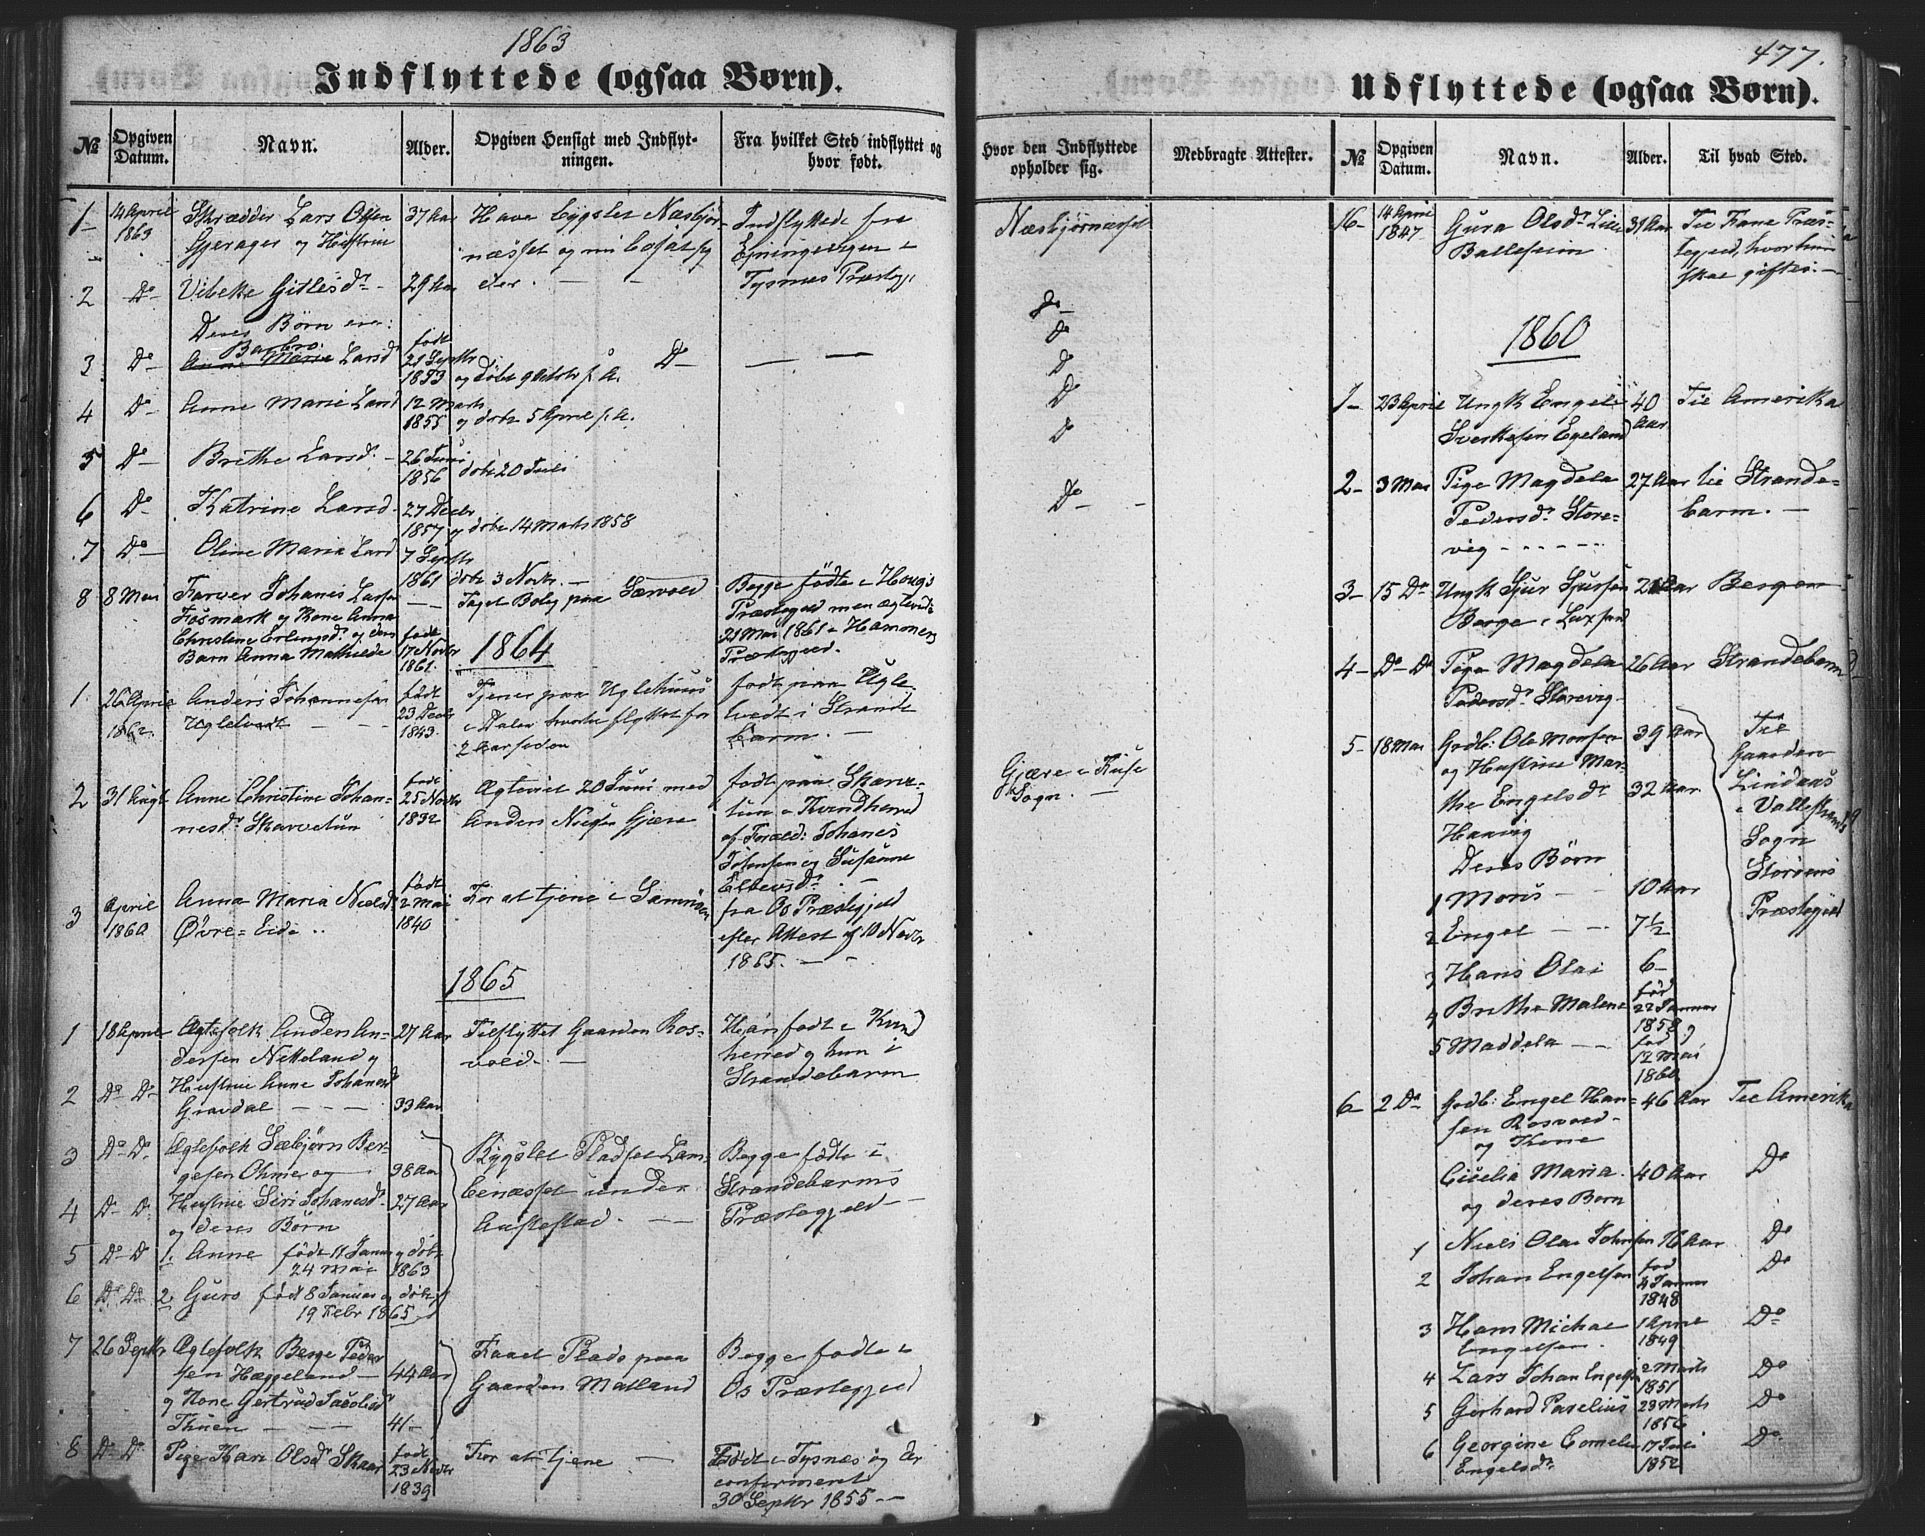 1863
Indflyttede (ogsaa Børn).
№ Opgiven Datum. Navn. Alder. Opgiven Hensigt med Indflytningen. Fra hvilket Sted indflyttet og hvor født.
1- 14 April 1863 Skrædder Lars Olsen 37 Aar Have bygslet Næsbjør- Indflyttede fra
Gjerager og Hustrue næsset og nu bosat sig
2 Do- Vibeke Gitlesdr- 29 Aar der. - - Tysnes Præstegj:
Deres Børn ere:
Barbro
3 Do- Anne Marie Larsdr født 21 Septbr 1853 og døbt 9 Octbr s. A. Do-
4 Do- Anne Marie Larsd 12 Marts 1855 og døbt 5 April s. A.
5 Do- Brithe Larsd.- 26 Juni 1856 døbt 20 Juli
6 Do- Katrine Larsd. 27 Decbr 1857 og døbt 14 Marts 1858
7 Do- Oline Maria Larsd 7 Septbr 1861 døbt 3 Novbr.-
8 8 Mai Farver Johanis Larsen Taget Bolig paa Særvold Begge fødte i Hougs
Fosmark og Kone Anna Præstegjeld men ægteviede
Christine Erlingsdr og deres født 21 Mai 1861 i Hammers
Barn Anna Mathilde 17 Novbr 1861. Præstegjeld.
1864
1 26 April 1862. Anders Johannesen født Tjener paa Uglehuus født paa Ugle-
Uglehvedt - - 23 Decbr 1843. i Dalen hvortil flyttet for hvedt i Strande
2 Aar siden barm. -
2 31 Augt Anne Christine Johan- født 25 Novbr 1832 Ægteviet 20 Juni med født paa Skarve-
nesdr Skarvetun Anders Nielsen Gjære tun i Kvindherred
af Foræld: Johanis
Johnsen og Susanne
3 April 1860 Anna Maria Nielsd født 2 Mai 1840 For at tjene i
Øvre=Eide .. fra Os Præstegjeld
efter Attest af 10 Novbr
1865. - -
1865
1 18 April Ægtefolk Anders An- 27 Aar Tilflyttet Gaarden Ros- Han født i Kvind
dersen Nikkeland og vold. - herred og hun i
2 Do Do- Hustrue Anne Johanesd Strandebarm
Gravdal - - - 33 Aar
3 Do Do Ægtefolk Sæbjørn Ber- Bygslet Pladset Lam- Begge fødte i
gesen Ohme og 38 Aar benæsset under Strandebarms
4 Do- Do Hustrue Siri Johanesdr 27 Aar Austestad. - Præstegjeld-
og deres Børn
5 Do Do 1. Anne født 17 Januar og døbt
24 Mai 1863
6 Do Do 2. Guro født 8 Januar og døbt
19 Febr 1865
7 26 Septbr Ægtefolk Berge Peder Faaet Plads paa Begge fødte i
sen Hæggeland - 44 Aar Gaarden Matland Os Præstegjeld
og Kone Gertrud Jacobsd
Thuen - - 41-
8 Do Do Pige Kari Olsdr Skaar født 23 Novbr 1839 For at tjene - Født i Tysnes og der
confirmeret
30 Septbr 1855-
Hvor den Indflyttede opholder sig. Medbragte Attester.
Næsbjørnæsset
Do-
Do
Do
Do
Do
Do- -
Gjære i Fuse
Sogn. -
477.
Udflyttede (ogsaa Børn).
№ Opgiven Datum. Navn. Alder. Til hvad Sted.
16- 14 April 1847 Gura Olsdr Lille 31 Aar Til Fane Præs-
Balleseim tegjeld, hvor hun
skal giftes.-
1860
1- 23 April Ungk Engel 40 Aar Til Amerika
Sverkesen Egeland
2- 3 Mai Pige Magdela 27 Aar til Strande-
Pedersdr Store- barm. -
vig - - - - -
3- 15 Do Ungk Sjur Sjursen Aar Bergen
Berge i
4- Do Do Pige Magdela 26 Aar Strandebarm
Pedersdr Storevig-
5- 18 Mai Godb: Ole Monsen 39 Aar Til
og Hustrue Mar- Gaarden
the Engelsdr 32 Aar Lindaas
Haavig i Vallestrands
Deres Børn Sogn
1 Mons - - 10 Aar Storøens
2 Engel - - 7½ Præstegjeld
3 Hans Olai 6-
4 Brithe Malene født 22 Januar 1858
5 Maddela - - født 12 Mai 1860
6- 2 Do Godb: Engel Han- 46 Aar Til Amerika
sen Rosvold-
og Kone
Cicelia Maria 40 Aar Do
og deres Børn
1 Niels Olai Johnsen 16 Aar Do
2 Johan Engelsen fød 4 Januar 1848 Do
3 Hans Michal 1 April 1849 Do
Engelsen.
4 Lars Johan Engelsen 2 Marts 1851 Do
5 Gerhard Paselius 28 Marts 1856 Do
6 Georgine Cornelia 17 Juli 1852 Do
Engelsdr